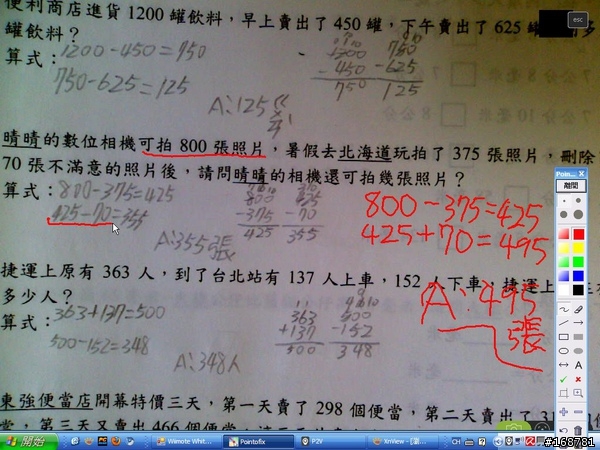 便利商店進貨 1200 罐飲料，早上賣出了 450 罐，下午賣出了 625
罐飲料？
算式：1200-450=750
750-625=125
1200 750
-450 -625
750 125
A:125
晴晴的數位相機可拍 800 張照片，暑假去北海道玩拍了 375 張照片，刪除
70 張不滿意的照片後，請問晴晴的相機還可拍幾張照片？
算式：800-375=425
425-70=355
800 425
-375 -70
425 355
A:355張
800-375=425
425+70=495
A:495
張
捷運上原有 363 人，到了台北站有 137 人上車，152 人下車，捷運上
多少人？
算式：363+137=500
500-152=348
363 500
+137 -152
500 348
A:348人
東強便當店開幕特價三天，第一天賣了 298 個便當，第二天賣出了
當，第三天又賣出 466 個便當，
esc
Poin...
離開
A
開始
Wiimote Whit...
Pointofix
P2V
XnView - [第...
CH
#168781